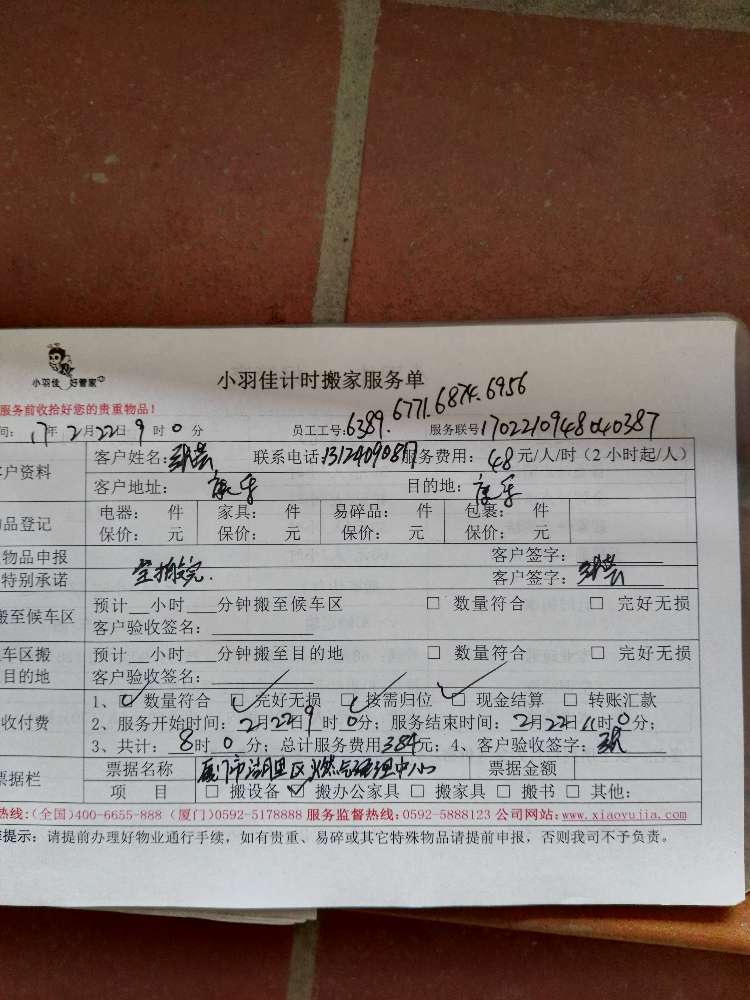 小羽佳 好管家
小羽佳计时搬家服务单
服务前收拾好您的贵重物品！
间: 17年2月22日9时0分 员工工号: 6389. 6771. 6874. 6956 服务联号 1702210948040387
客户资料 客户姓名: 联系电话: 服务费用: 48元/人/时（2小时起/人）
客户地址: 康乐 目的地: 康乐
物品登记 电器: 件 家具: 件 易碎品: 件 包裹: 件
保价: 元 保价: 元 保价: 元 保价: 元
物品申报 客户签字:
特别承诺 客户签字:
搬至候车区 预计__小时____分钟搬至候车区 □ 数量符合 □ 完好无损
客户验收签名:
车区搬 预计__小时____分钟搬至目的地 □ 数量符合 □ 完好无损
目的地 客户验收签名:
收付费 1、□ 数量符合 □ 完好无损 □ 按需归位 □ 现金结算 □ 转账汇款
2、服务开始时间: 2月22日9时0分; 服务结束时间: 2月22日11时0分;
3、共计: 8时0分; 总计服务费用384元; 4、客户验收签字:
票据栏 票据名称 厦门市 区燃气 中心 票据金额
项 目 □ 搬设备 □ 搬办公家具 □ 搬家具 □ 搬书 □ 其他:
热线:(全国)400-6655-888 (厦门)0592-5178888 服务监督热线:0592-5888123 公司网站:www.xiaoyujia.com
提示: 请提前办理好物业通行手续，如有贵重、易碎或其它特殊物品请提前申报，否则我司不予负责。